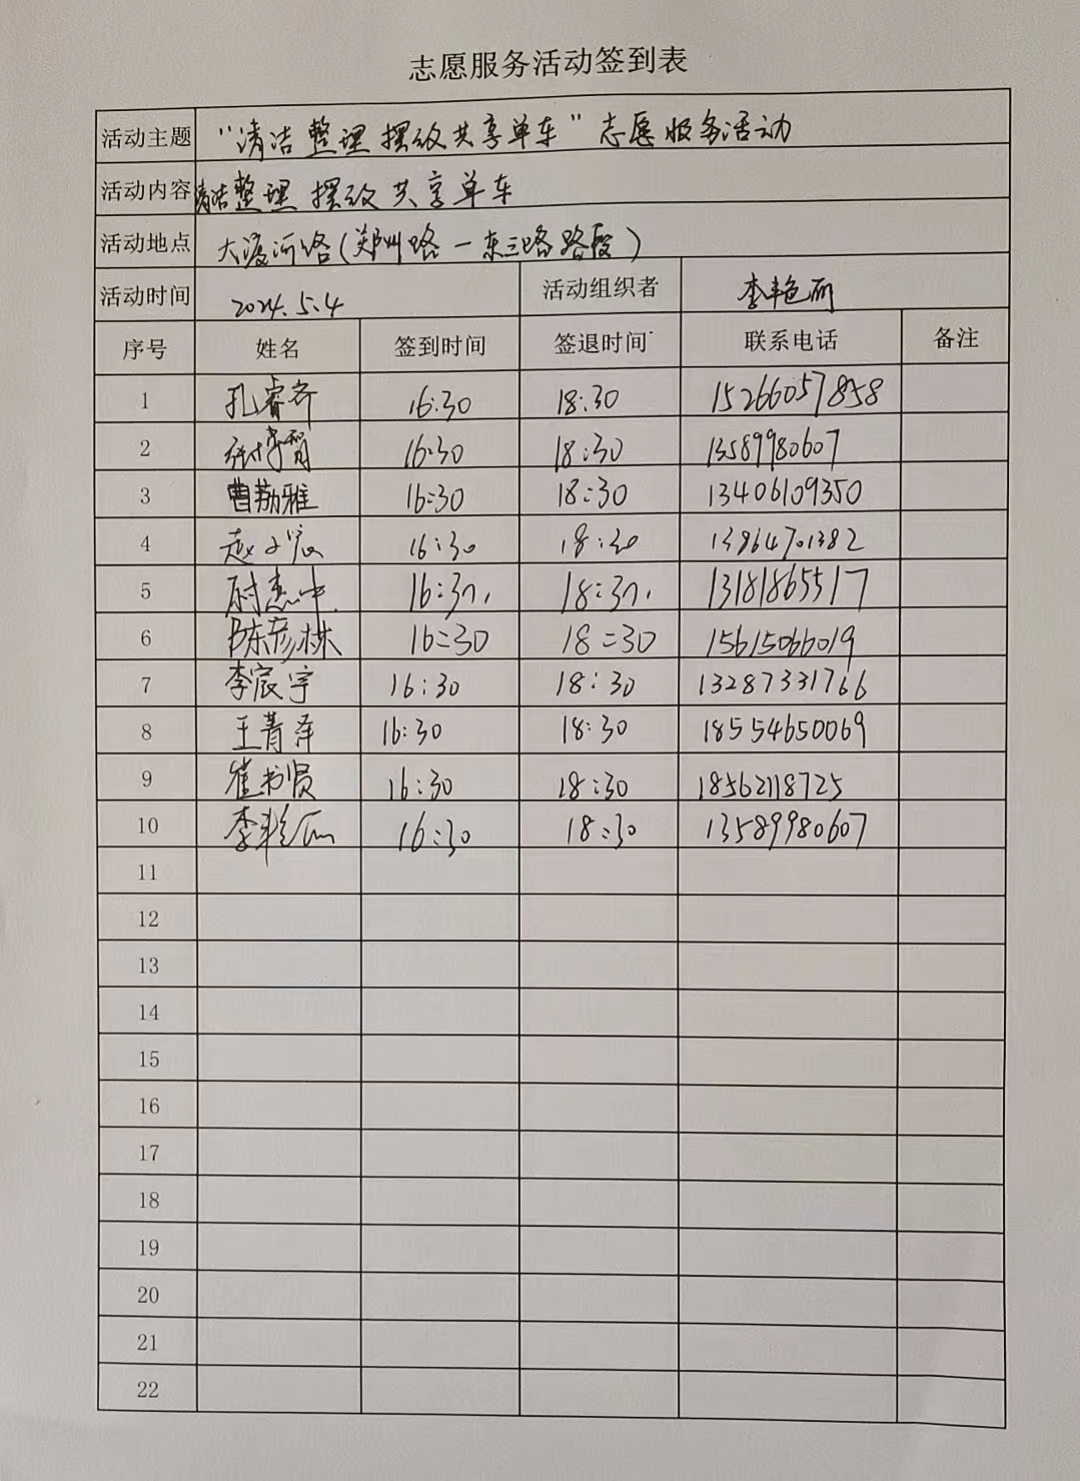 志愿服务活动签到表
活动主题 “清洁整理摆放共享单车”志愿服务活动
活动内容 清洁整理摆放共享单车
活动地点 大渡河路(郑州路一东三路路段)
活动时间 2024.5.4 活动组织者 李艳丽
序号 姓名 签到时间 签退时间 联系电话 备注
1 孔睿齐 16:30 18:30 15266057858
2 16:30 18:30 13589980607
3 曹勐雅 16:30 18:30 13406109350
4 赵子宸 16:30 18:30 13864701382
5 尉杰中 16:30 18:30 13181865517
6 陈彦林 16:30 18:30 15615066019
7 李宸宇 16:30 18:30 13287331766
8 王菁泽 16:30 18:30 18554650069
9 崔书贤 16:30 18:30 18562118725
10 李艳丽 16:30 18:30 13589980607
11
12
13
14
15
16
17
18
19
20
21
22